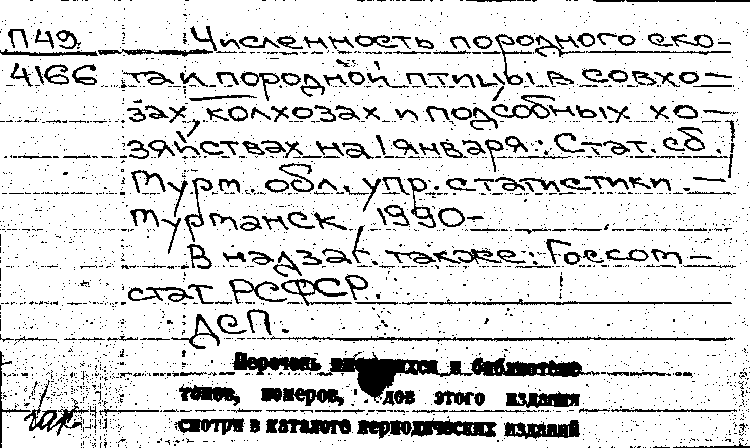 П49 Численность породного ско-
4166 та и породной птицы в совхо-
зах, колхозах и подсобных хо-
зяйствах на 1 января: Стат. сб.
Мурм. обл. упр. статистики. —
Мурманск, 1990-
В надзаг. также: Госком-
стат РСФСР.
ДСП.
Перечень имеющихся в библиотеке
томов, номеров, годов этого издания
смотри в каталоге периодических изданий